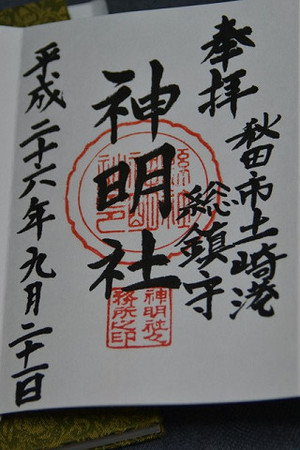 奉拝
秋田市土崎港
総鎮守
神明社
神明社々
務所之印
平成二十六年九月二十一日